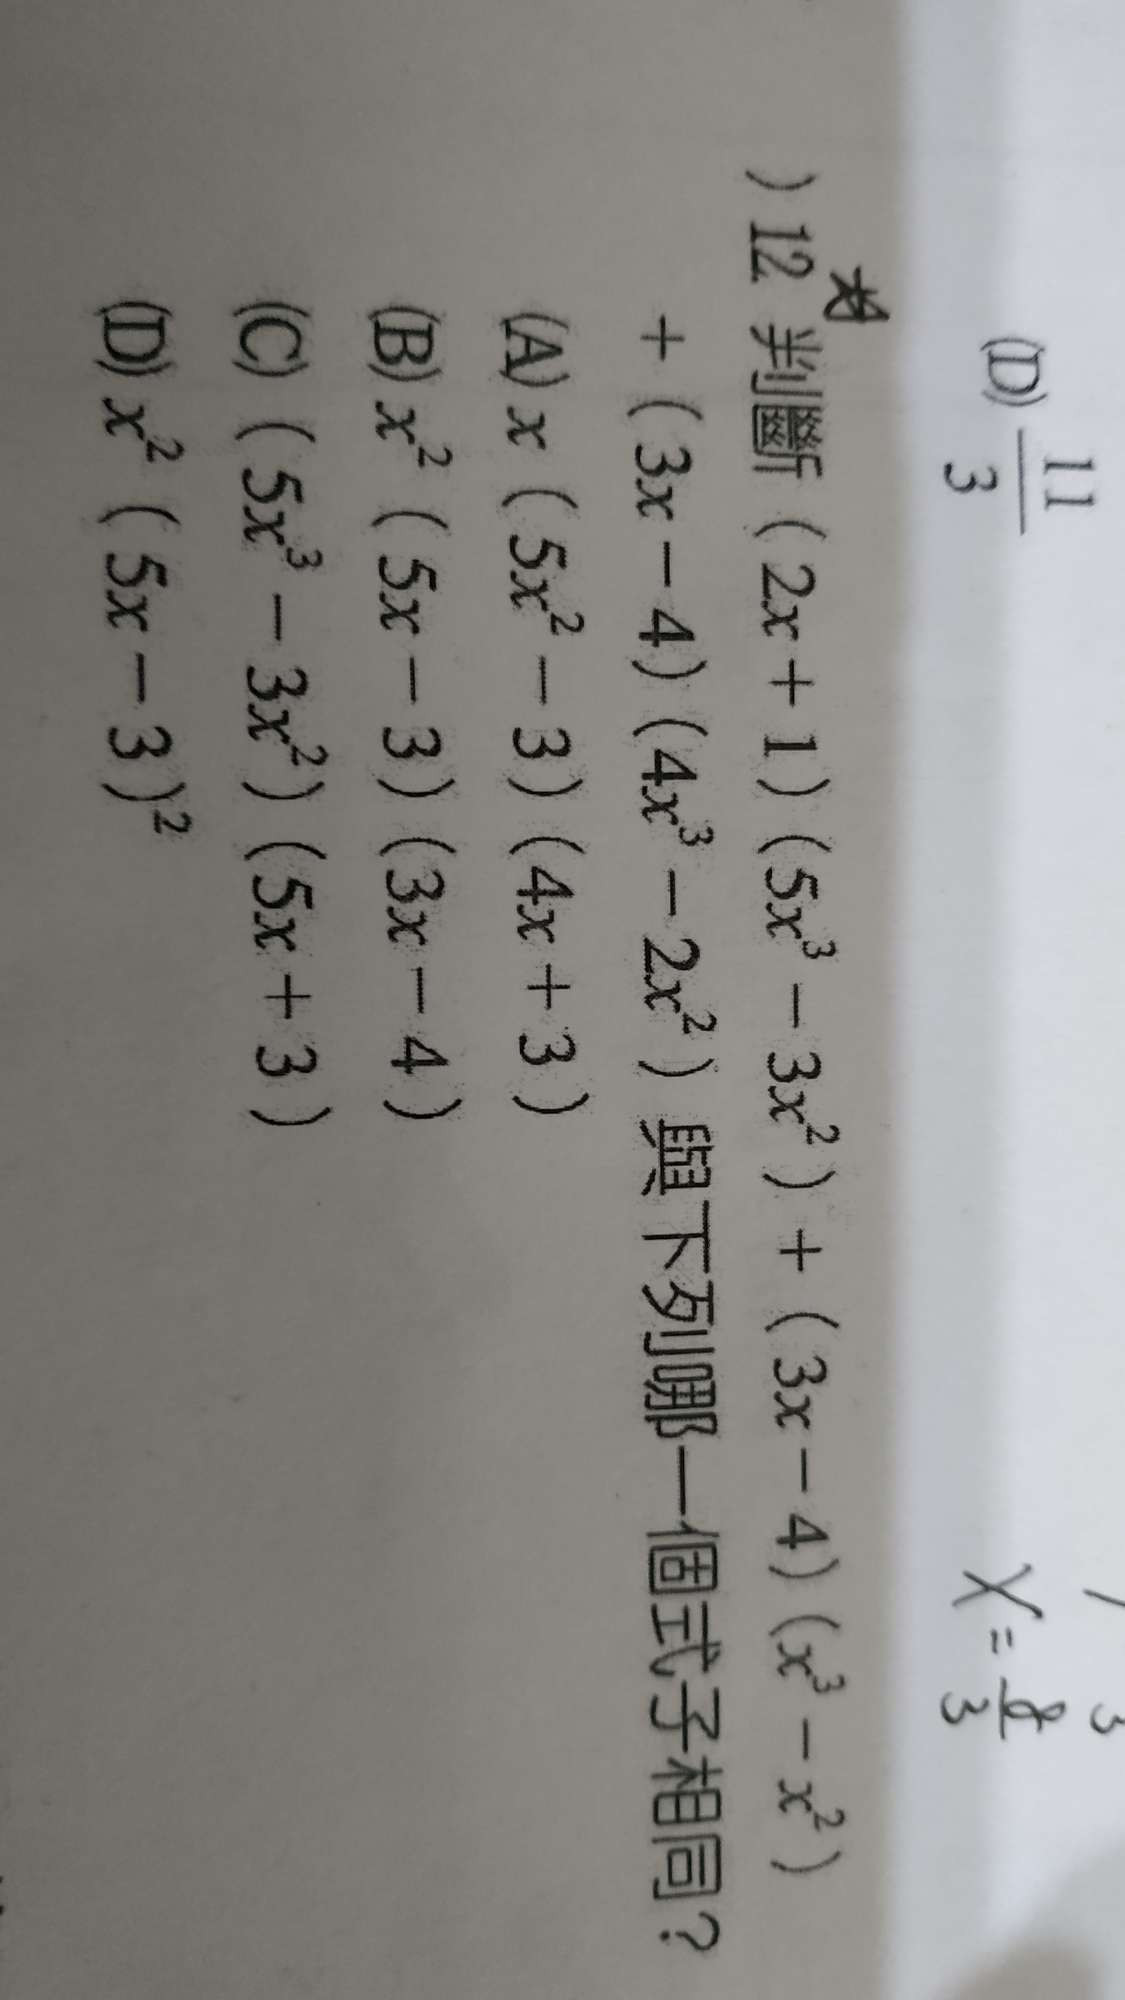 (D) 11/3
x = 8/3
) 12 判斷 ( 2x + 1 ) ( 5x³ − 3x² ) + ( 3x − 4 ) ( x³ − x² )
+ ( 3x − 4 ) ( 4x³ − 2x² ) 與下列哪一個式子相同？
(A) x ( 5x² − 3 ) ( 4x + 3 )
(B) x² ( 5x − 3 ) ( 3x − 4 )
(C) ( 5x³ − 3x² ) ( 5x + 3 )
(D) x² ( 5x − 3 )²